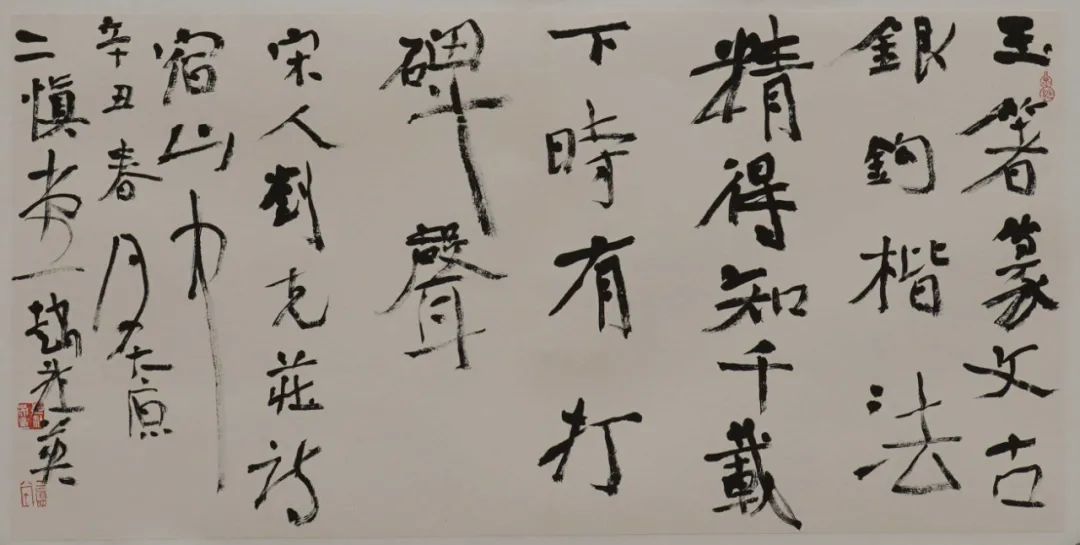 玉箸篆文古
銀鉤楷法
精得知千載
下時有打
碑聲
宋人劉克莊詩
宿山中
辛丑春月太原
二慎趙英